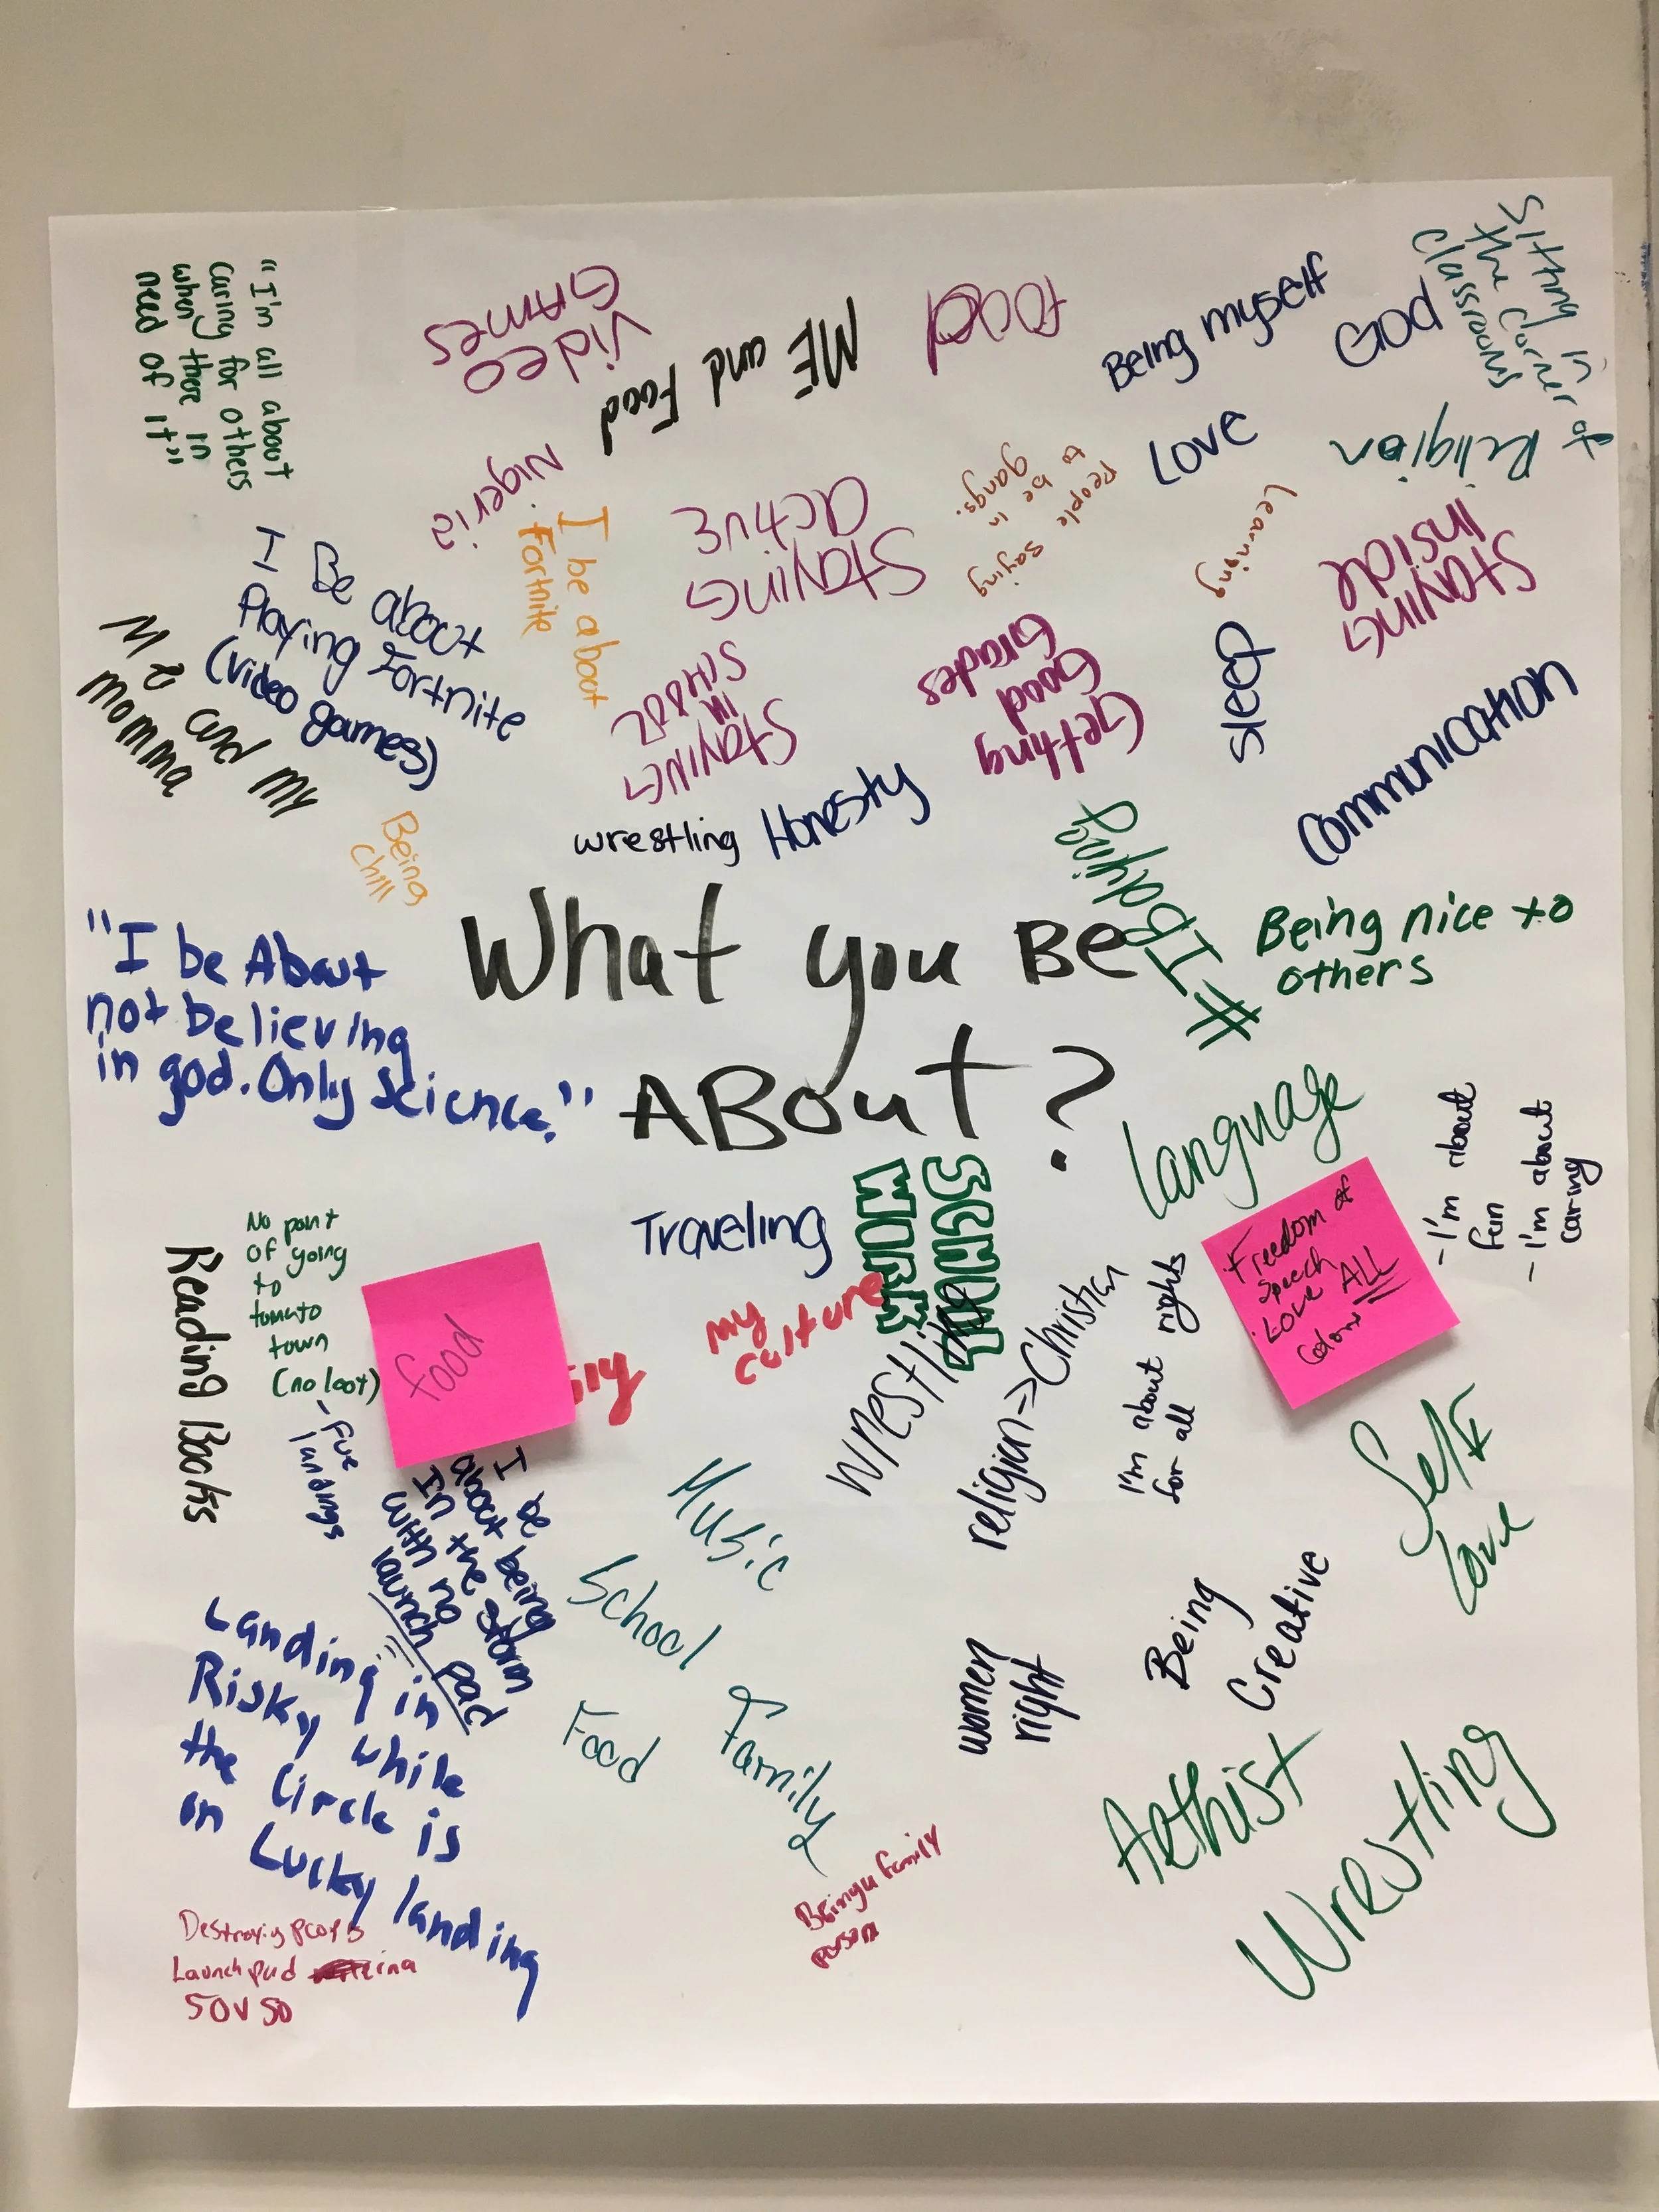 "I'm all about
caring for others
when there in
need of it"
Video
Games
ME and Food
food
Being myself
God
Sitting in
the corner of
classrooms
Love
Religion
Nigeria
I be about
Fortnite
Staying
active
People saying
to be in
gangs.
Learning
Staying
Inside
I Be about
Playing Fortnite
(video games)
Me and My
momma
Staying
in
School
Getting
Good
Grades
sleep
Communication
Being
chill
wrestling
Honesty
Being nice to
others
"I be About
not believing
in god. Only Science."
What you Be
About?
language
-I'm about
fun
-I'm about
caring
Freedom of
speech
Love ALL
Traveling
School
Work
my
culture
No point
of going
to
tomato
town
(no loot)
Reading Books
food
ily
wrestling
religion->Christian
I'm about rights
for all
Self
Love
landings
I be
about being
In the storm
with no
launch pad
Music
School
Food
Family
women
right
Being
Creative
Landing in
Risky while
the Circle is
on Lucky landing
Aethist
Wrestling
Being a family
person
Launch pad
50v50